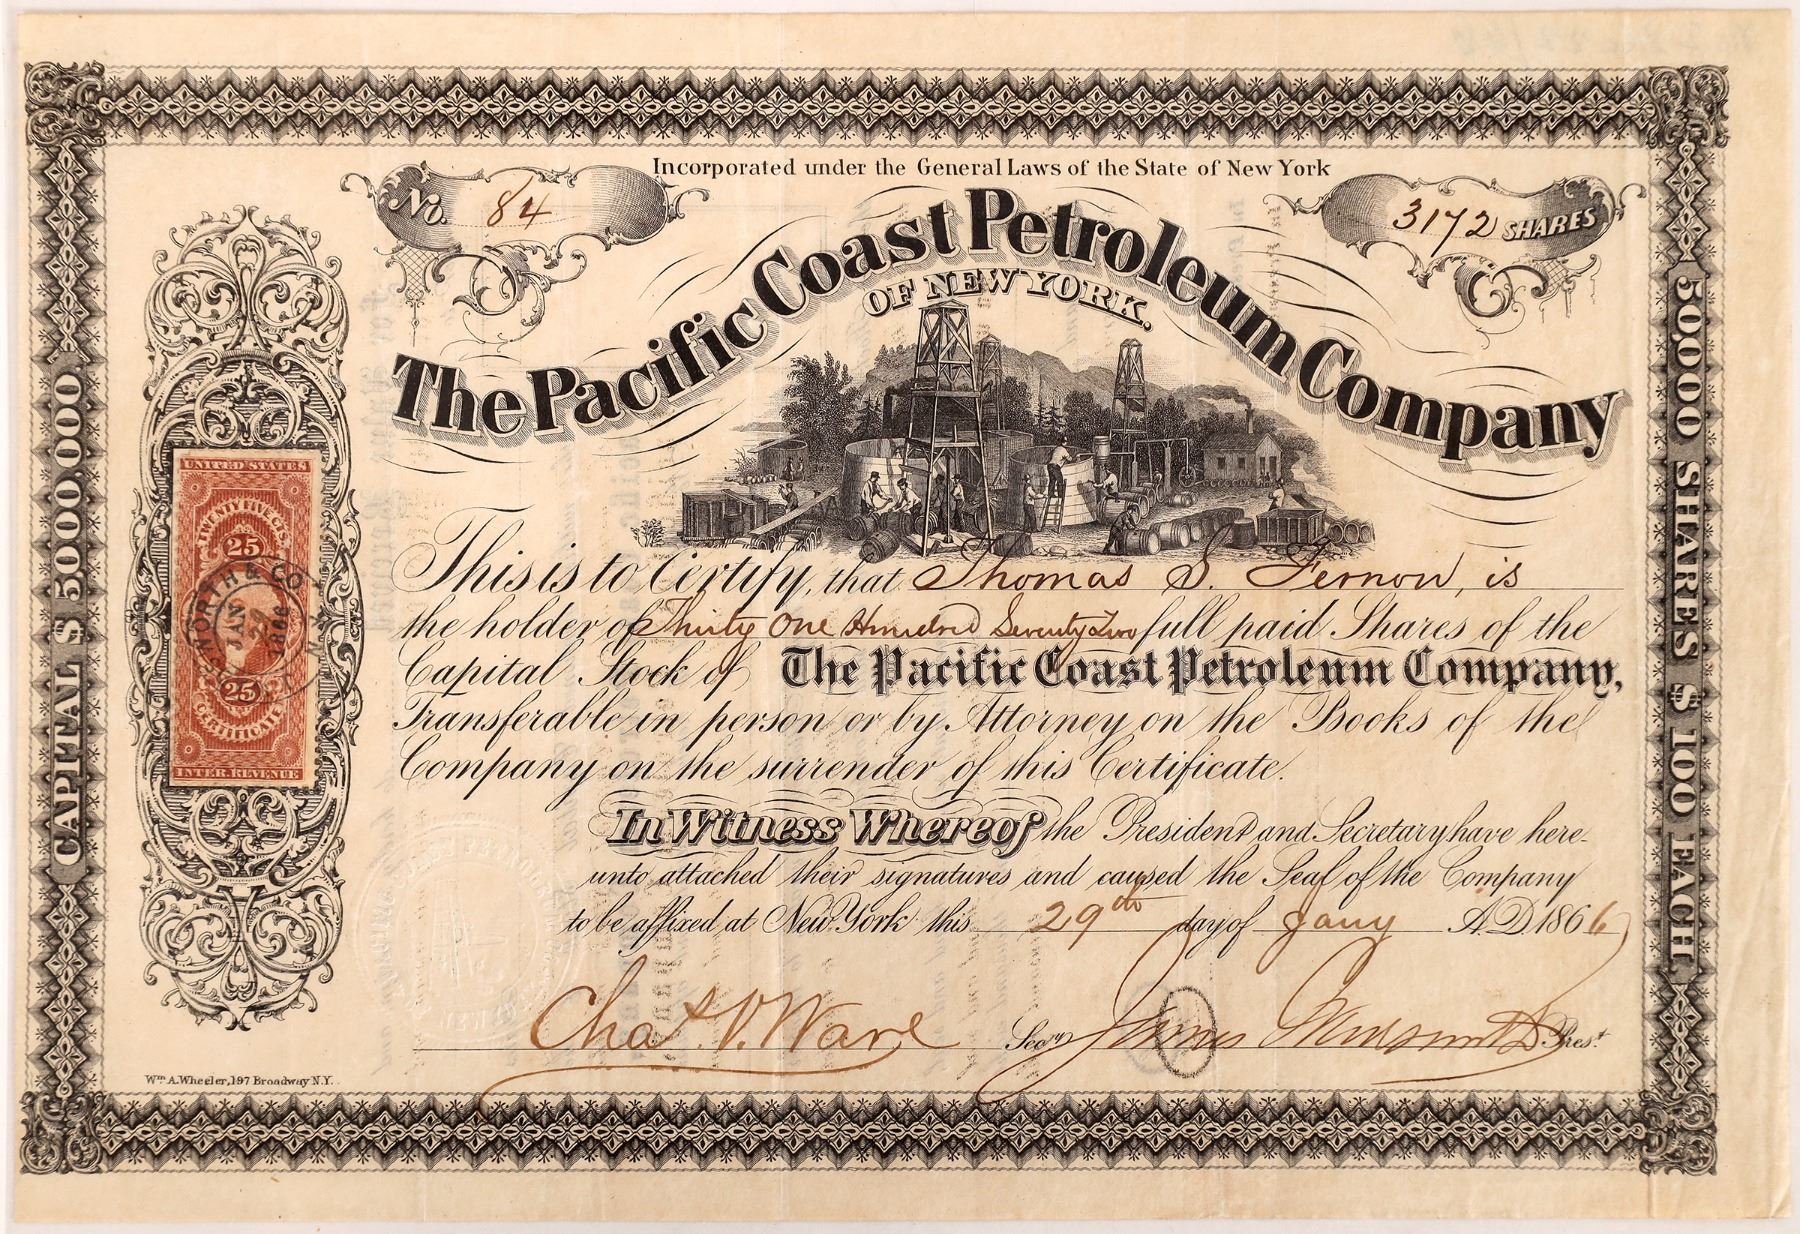 Incorporated under the General Laws of the State of New York
No. 84
3172 SHARES
The Pacific Coast Petroleum Company
OF NEW YORK.
This is to Certify, that Thomas S. Fernon, is
the holder of Thirty One Hundred Seventy Two full paid Shares of the
Capital Stock of The Pacific Coast Petroleum Company,
Transferable in person or by Attorney on the Books of the
Company on the surrender of this Certificate.
In Witness Whereof the President and Secretary have here-
unto attached their signatures and caused the Seal of the Company
to be affixed at New York this 29th day of Jany A.D. 1866
Chas V. Ware Secy. James Prest.
Wm. A. Wheeler, 197 Broadway N.Y.
CAPITAL $ 5000,000.
50,000 SHARES $ 100 EACH.
UNITED STATES
TWENTY FIVE CTS.
25
WORTH & CO
JAN
29
1866
N.Y.
25
CERTIFICATE
INTER. REVENUE